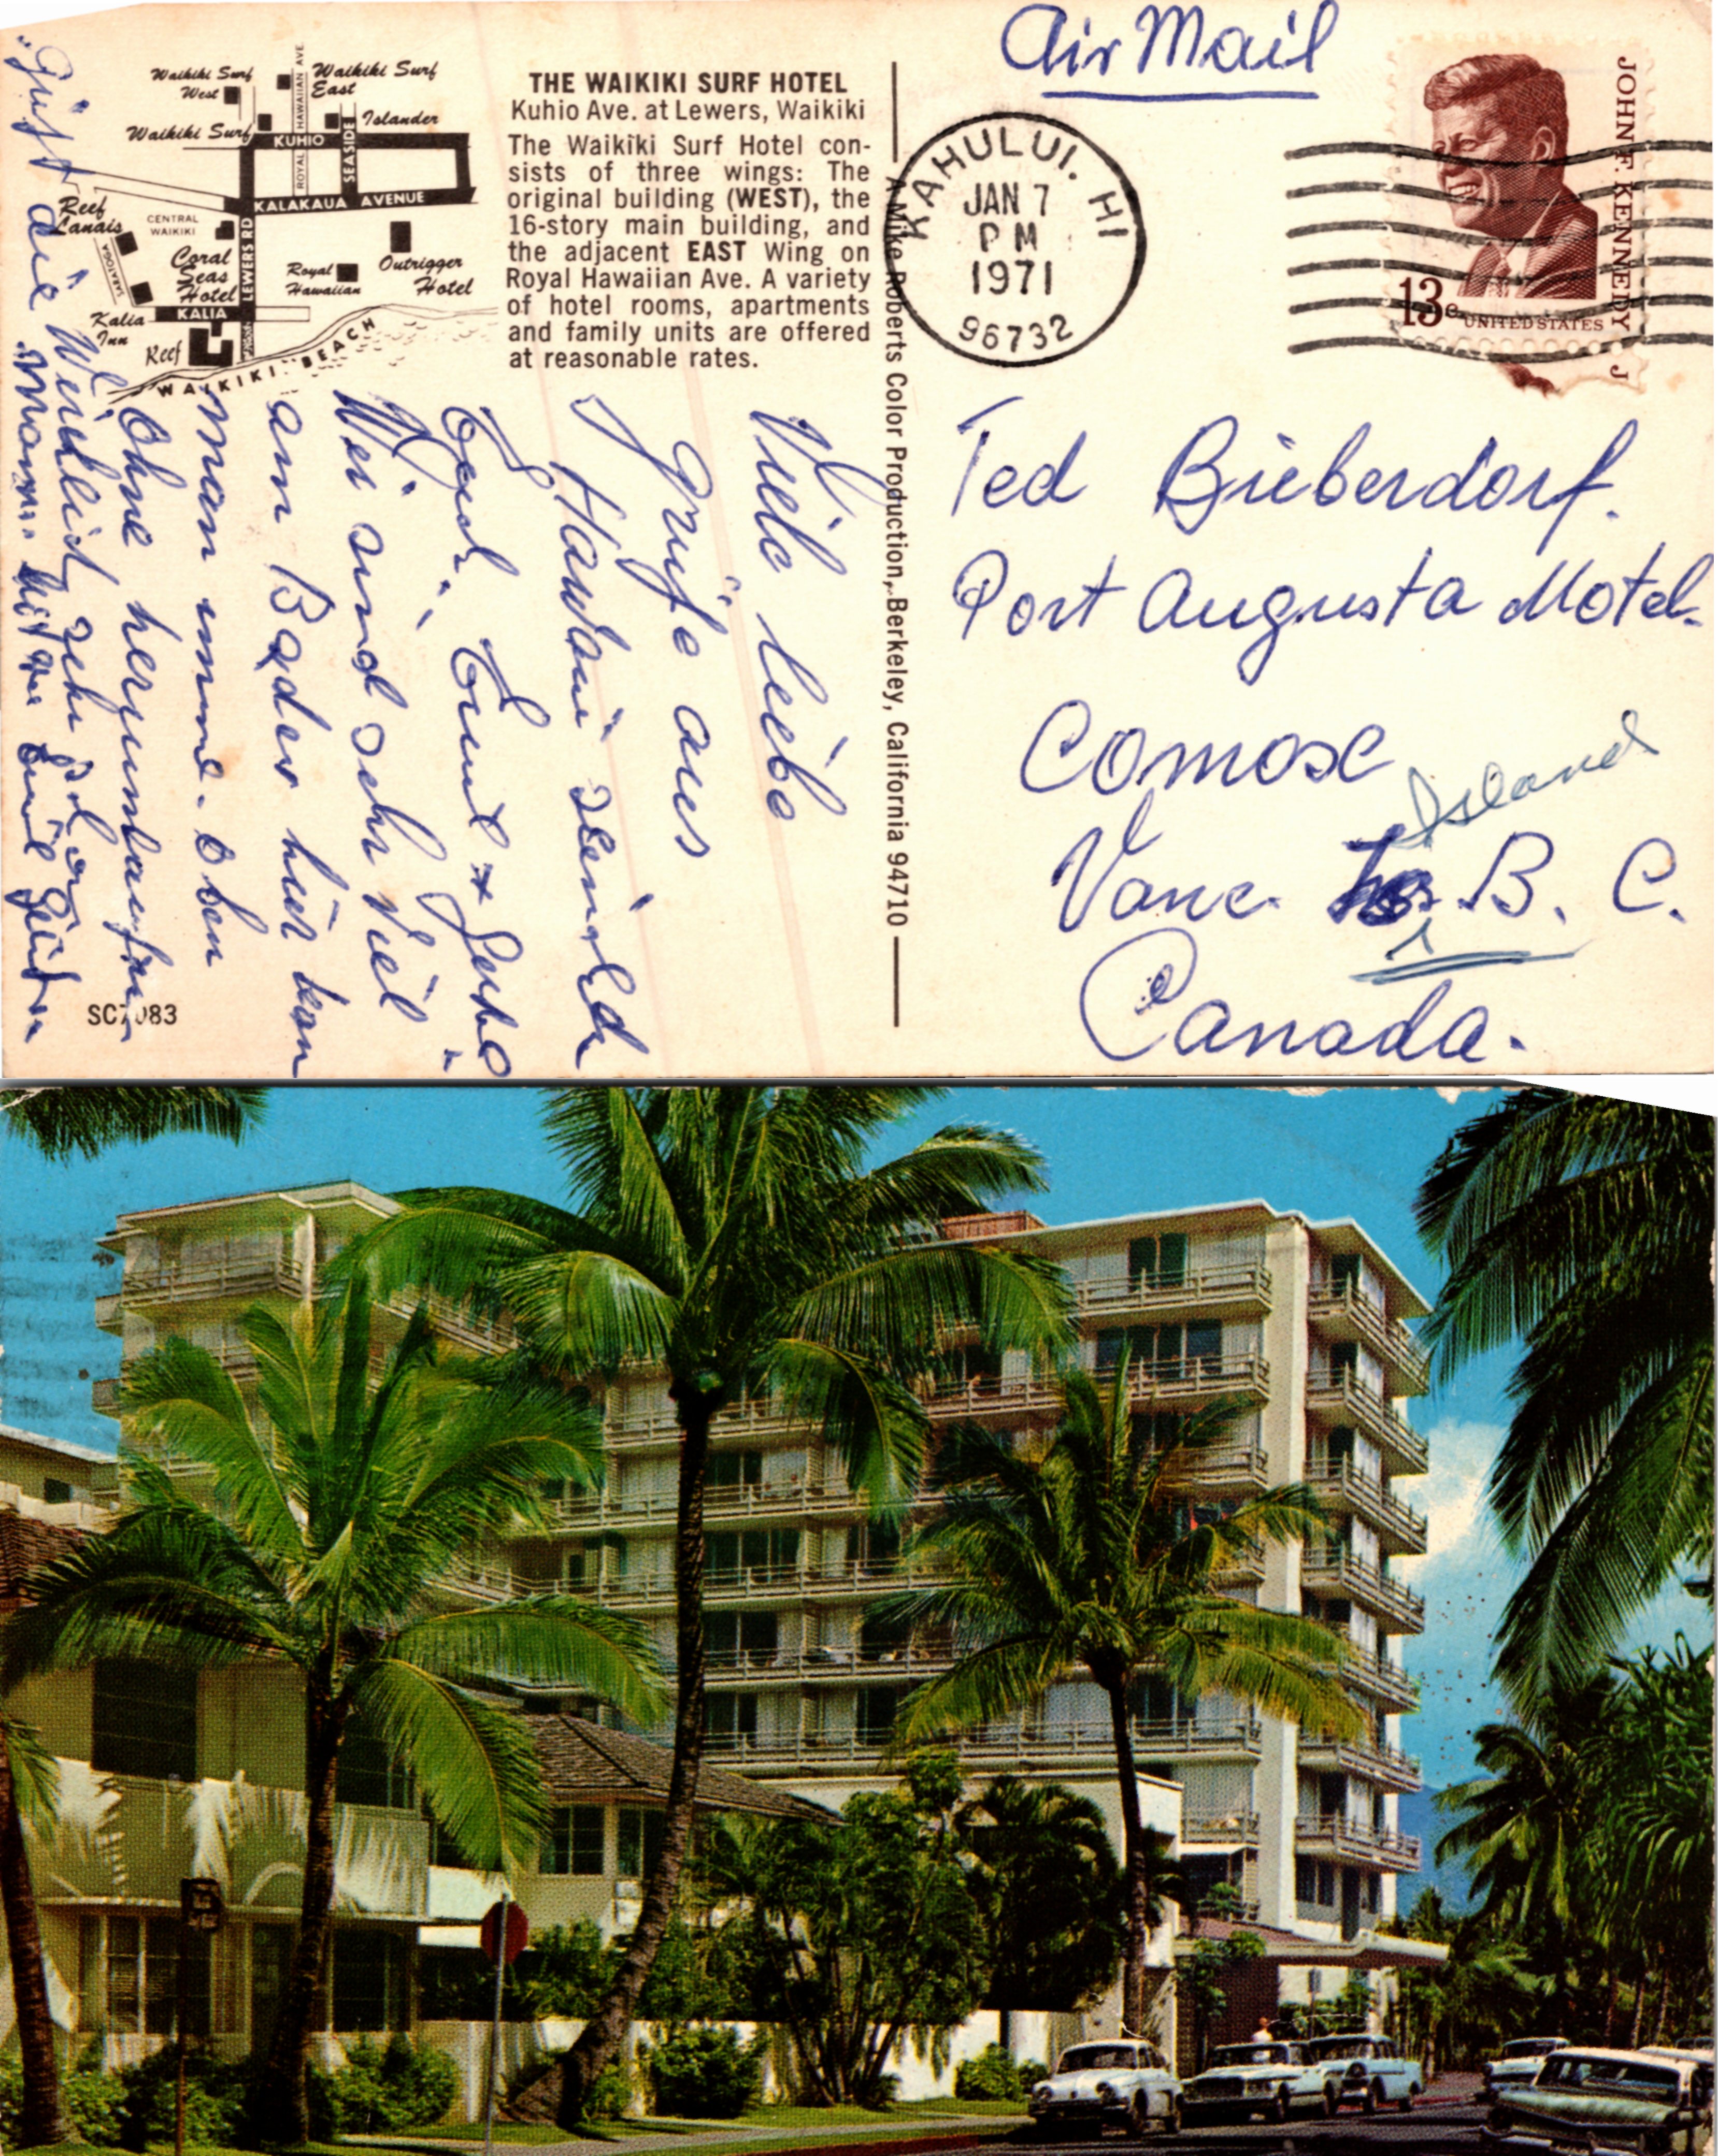 Air Mail
JOHN F. KENNEDY
13c UNITED STATES
J
KAHULUI. HI
JAN 7
PM
1971
96732
Waikiki Surf West
Waikiki Surf East
Waikiki Surf
Islander
HAWAIIAN AVE.
ROYAL
KUHIO
SEASIDE
KALAKAUA AVENUE
Reef Lanais
CENTRAL WAIKIKI
SARATOGA
Coral Seas Hotel
LEWERS RD
Royal Hawaiian
Outrigger Hotel
KALIA
Kalia Inn
Reef
WAIKIKI BEACH
THE WAIKIKI SURF HOTEL
Kuhio Ave. at Lewers, Waikiki
The Waikiki Surf Hotel con-
sists of three wings: The
original building (WEST), the
16-story main building, and
the adjacent EAST Wing on
Royal Hawaiian Ave. A variety
of hotel rooms, apartments
and family units are offered
at reasonable rates.
A Mike Roberts Color Production, Berkeley, California 94710
Ted Bieberdorf.
Port Augusta Motel.
Comox
Island
Vanc. B. C.
Canada.
Viele liebe
Grüße aus
Hawaii sendet
Euch
Wir sind sehr viel
am Baden hier kann
man immer oben
Ohne herumlaufen
Wirklich sehr schön
Grüßt die
SC7083